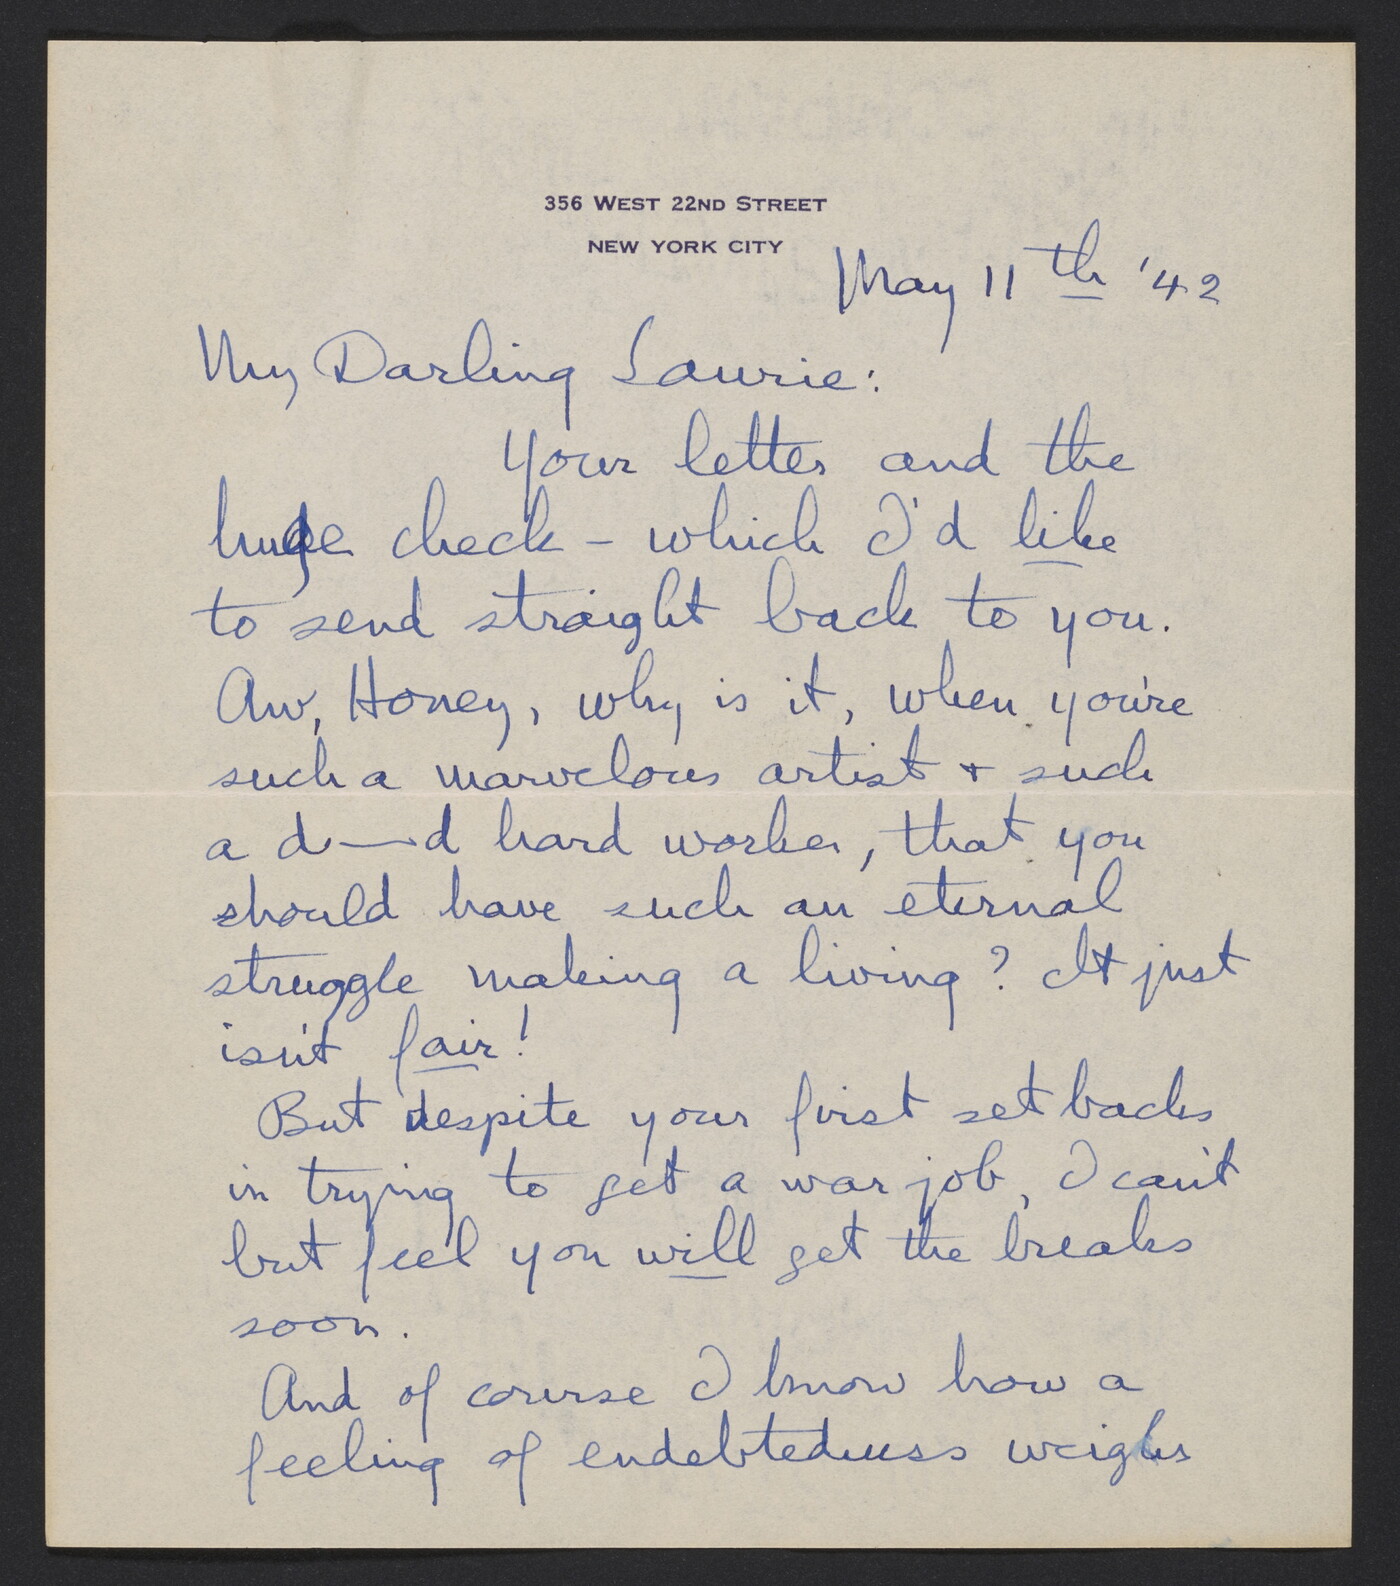 356 WEST 22ND STREET
NEW YORK CITY
May 11th '42
My Darling Laurie:
Your letter and the
huge check – which I'd like
to send straight back to you.
Aw, Honey, why is it, when you're
such a marvelous artist + such
a d—d hard worker, that you
should have such an eternal
struggle making a living? It just
isn't fair!
But despite your first setbacks
in trying to get a war job, I can't
but feel you will get the breaks
soon.
And of course I know how a
feeling of endebtedness weighs